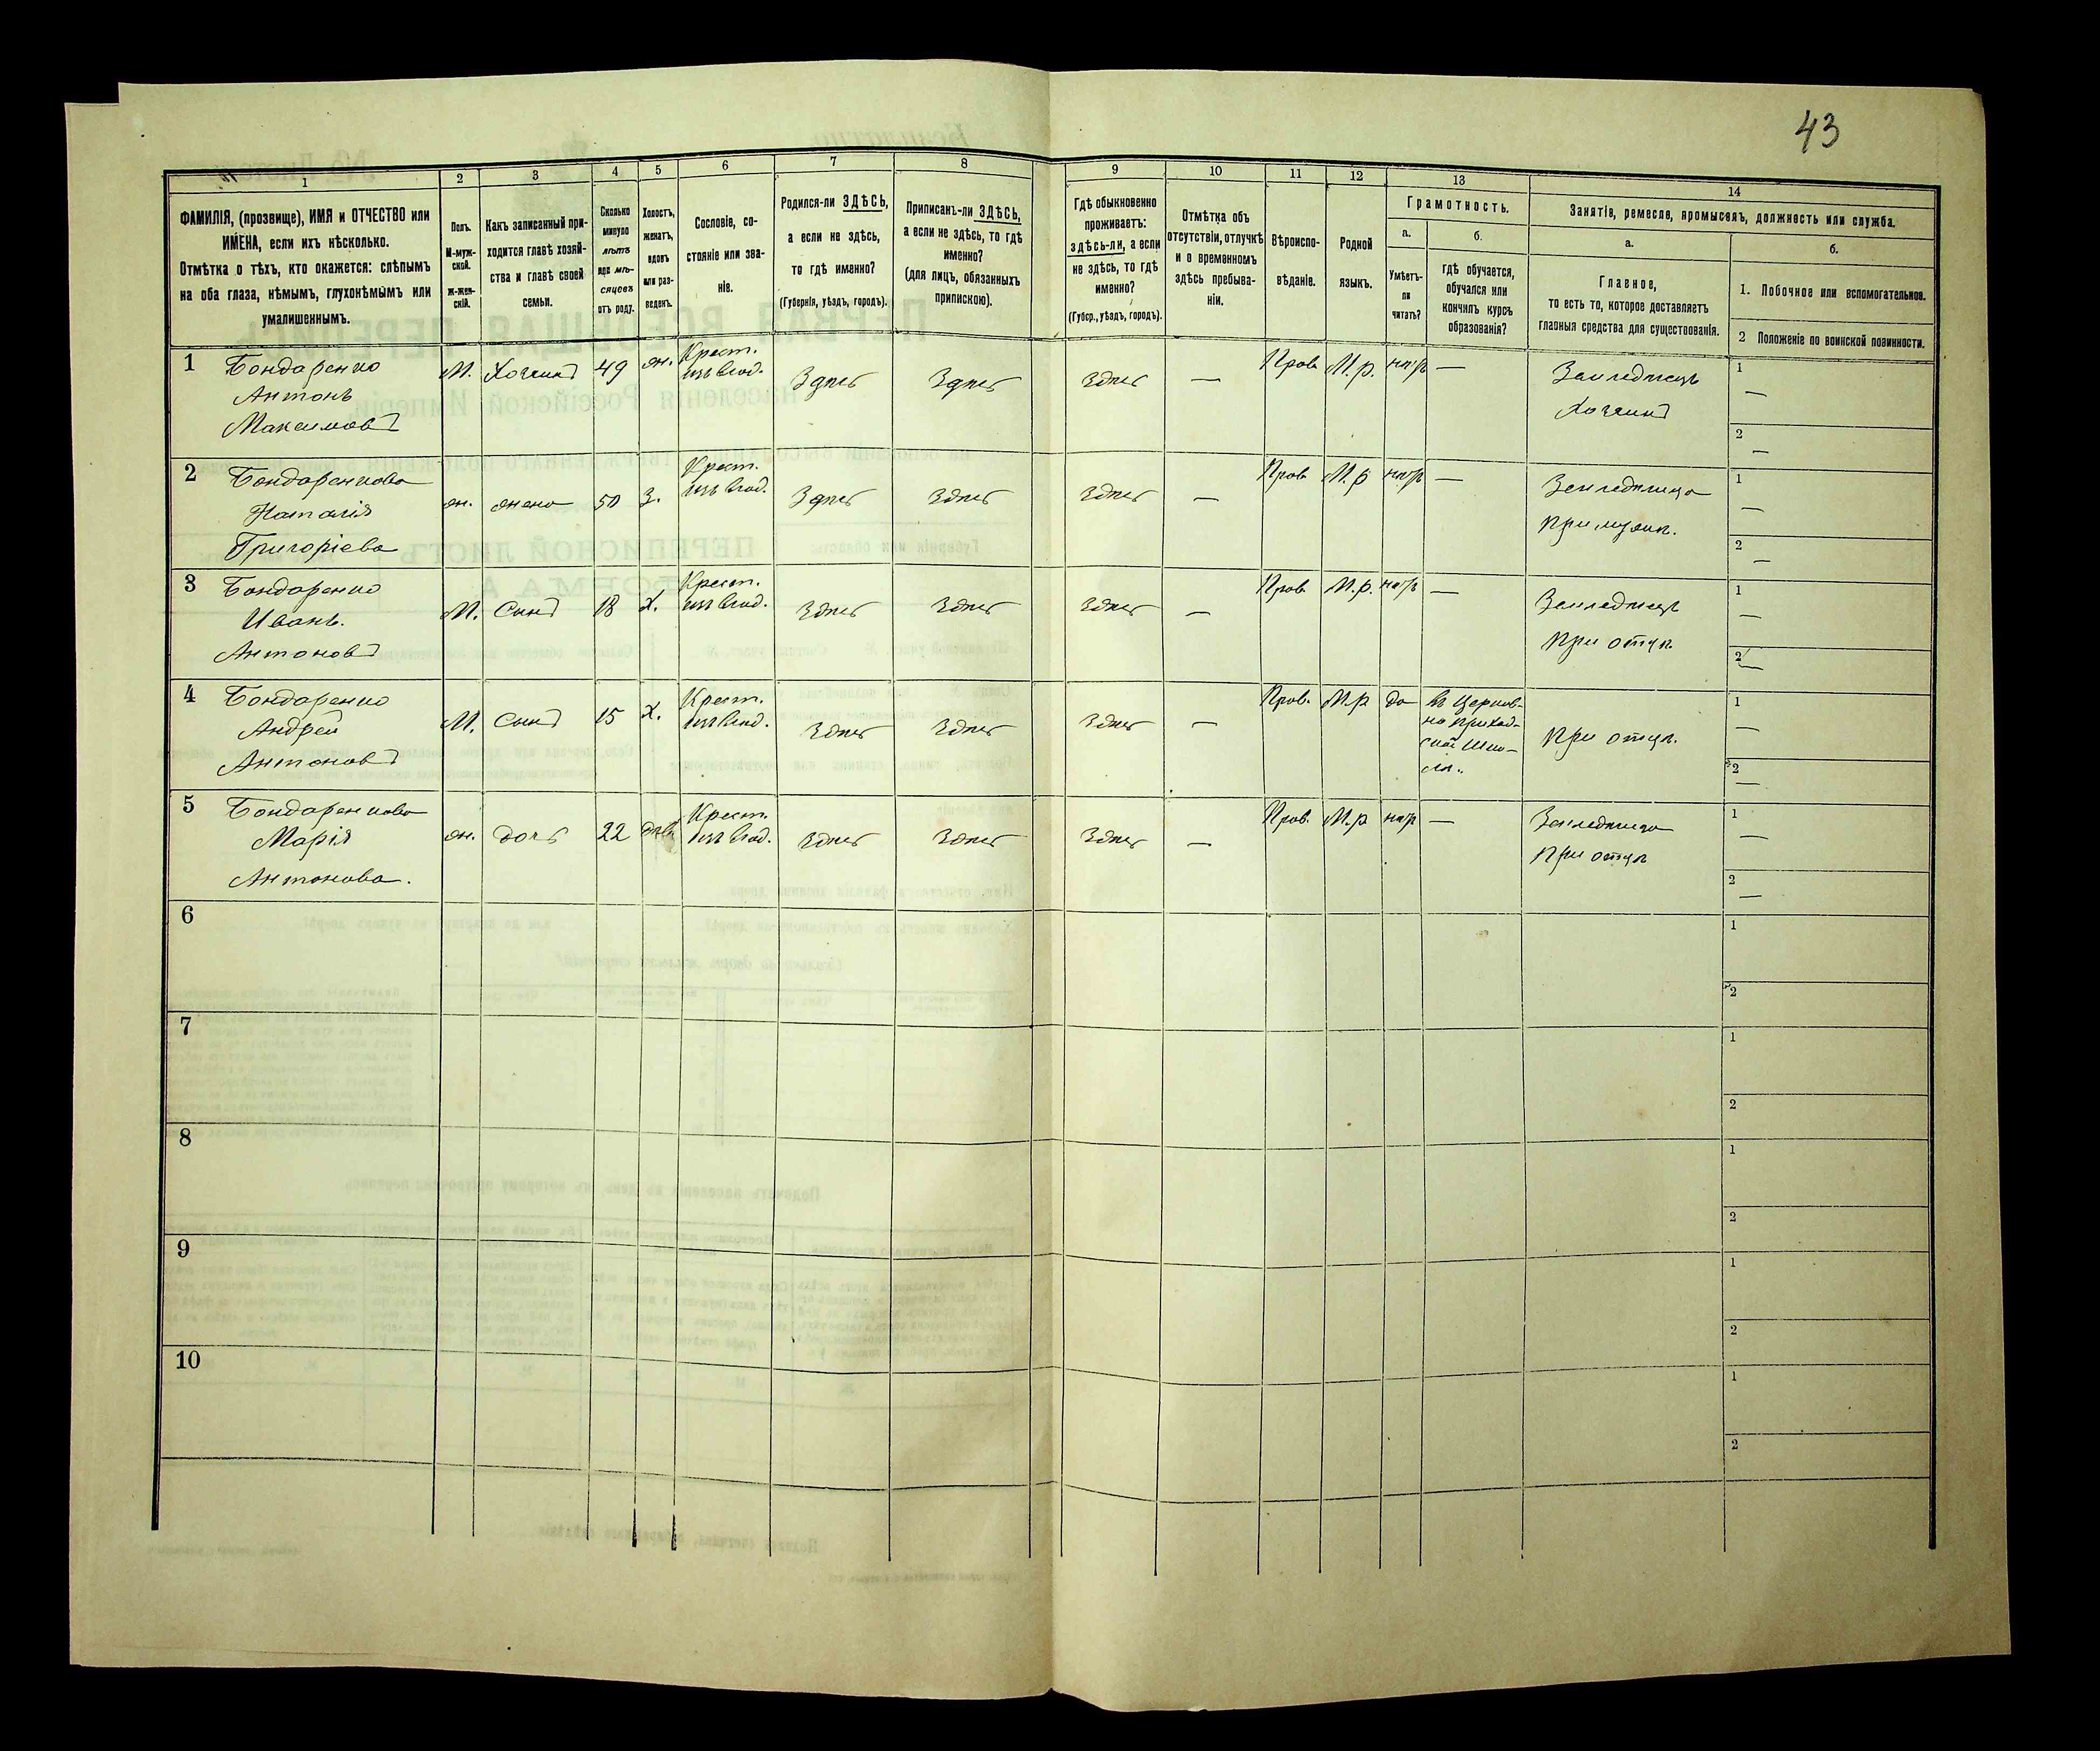 43
1
2
3
4
5
6
7
8
9
10
11
12
13
14
ФАМИЛІЯ, (прозвище), ИМЯ и ОТЧЕСТВО или
ИМЕНА, если ихъ нѣсколько.
Отмѣтка о тѣхъ, кто окажется: слѣпымъ
на оба глаза, нѣмымъ, глухонѣмымъ или
умалишеннымъ.
Полъ.
М-муж-
ской.
Ж-жен-
скій.
Какъ записанный при-
ходится главѣ хозяй-
ства и главѣ своей
семьи.
Сколько
минуло
лѣтъ
или мѣ-
сяцевъ
отъ роду.
Холостъ,
женатъ,
вдовъ
или раз-
веденъ.
Сословіе, со-
стояніе или зва-
ніе.
Родился-ли ЗДѢСЬ,
а если не здѣсь,
то гдѣ именно?
(Губернія, уѣздъ, городъ).
Приписанъ-ли ЗДѢСЬ,
а если не здѣсь, то гдѣ
именно?
(для лицъ, обязанныхъ
припискою).
Гдѣ обыкновенно
проживаетъ:
здѣсь-ли, а если
не здѣсь, то гдѣ
именно?
(Губер., уѣздъ, городъ).
Отмѣтка объ
отсутствіи, отлучкѣ
и о временномъ
здѣсь пребыва-
ніи.
Вѣроиспо-
вѣданіе.
Родной
языкъ.
Грамотность.
а.
б.
Умѣетъ-
ли
читать?
Гдѣ обучается,
обучался или
кончилъ курсъ
образованія?
Занятіе, ремесло, промыселъ, должность или служба.
а.
б.
Главное,
то есть то, которое доставляетъ
главныя средства для существованія.
1. Побочное или вспомогательное.
2 Положеніе по воинской повинности.
1
Бондаренко
Антонъ
Максимовъ
М.
Хозяинъ
49
жн.
Крест.
изъ влад.
Здѣсь
Здѣсь
Здѣсь
—
Прав.
М.р.
нѣтъ
—
Земледѣлецъ
Хозяинъ
1
—
2
—
2
Бондаренкова
Наталія
Григоріева
жн.
жена
50
З.
Крест.
изъ влад.
Здѣсь
Здѣсь
Здѣсь
—
Прав.
М.р
нѣтъ
—
Земледѣлица
при мужѣ.
1
—
2
—
3
Бондаренко
Иванъ.
Антоновъ
М.
Сынъ
18
Х.
Крест.
изъ влад.
Здѣсь
Здѣсь
Здѣсь
—
Прав.
М.р.
нѣтъ
—
Земледѣлецъ
при отцѣ
1
—
2
—
4
Бондаренко
Андрей
Антоновъ
М.
Сынъ
15
Х.
Крест.
изъ влад.
Здѣсь
Здѣсь
Здѣсь
—
Прав.
М.р
да
въ Церков-
но приход-
ской шко-
лѣ.
При отцѣ.
1
—
2
—
5
Бондаренкова
Марія
Антонова.
жн.
дочь
22
Крест.
изъ влад.
Здѣсь
Здѣсь
Здѣсь
—
Прав.
М.р
нѣтъ
—
Земледѣлица
при отцѣ
1
—
2
—
6
1
2
7
1
2
8
1
2
9
1
2
10
1
2